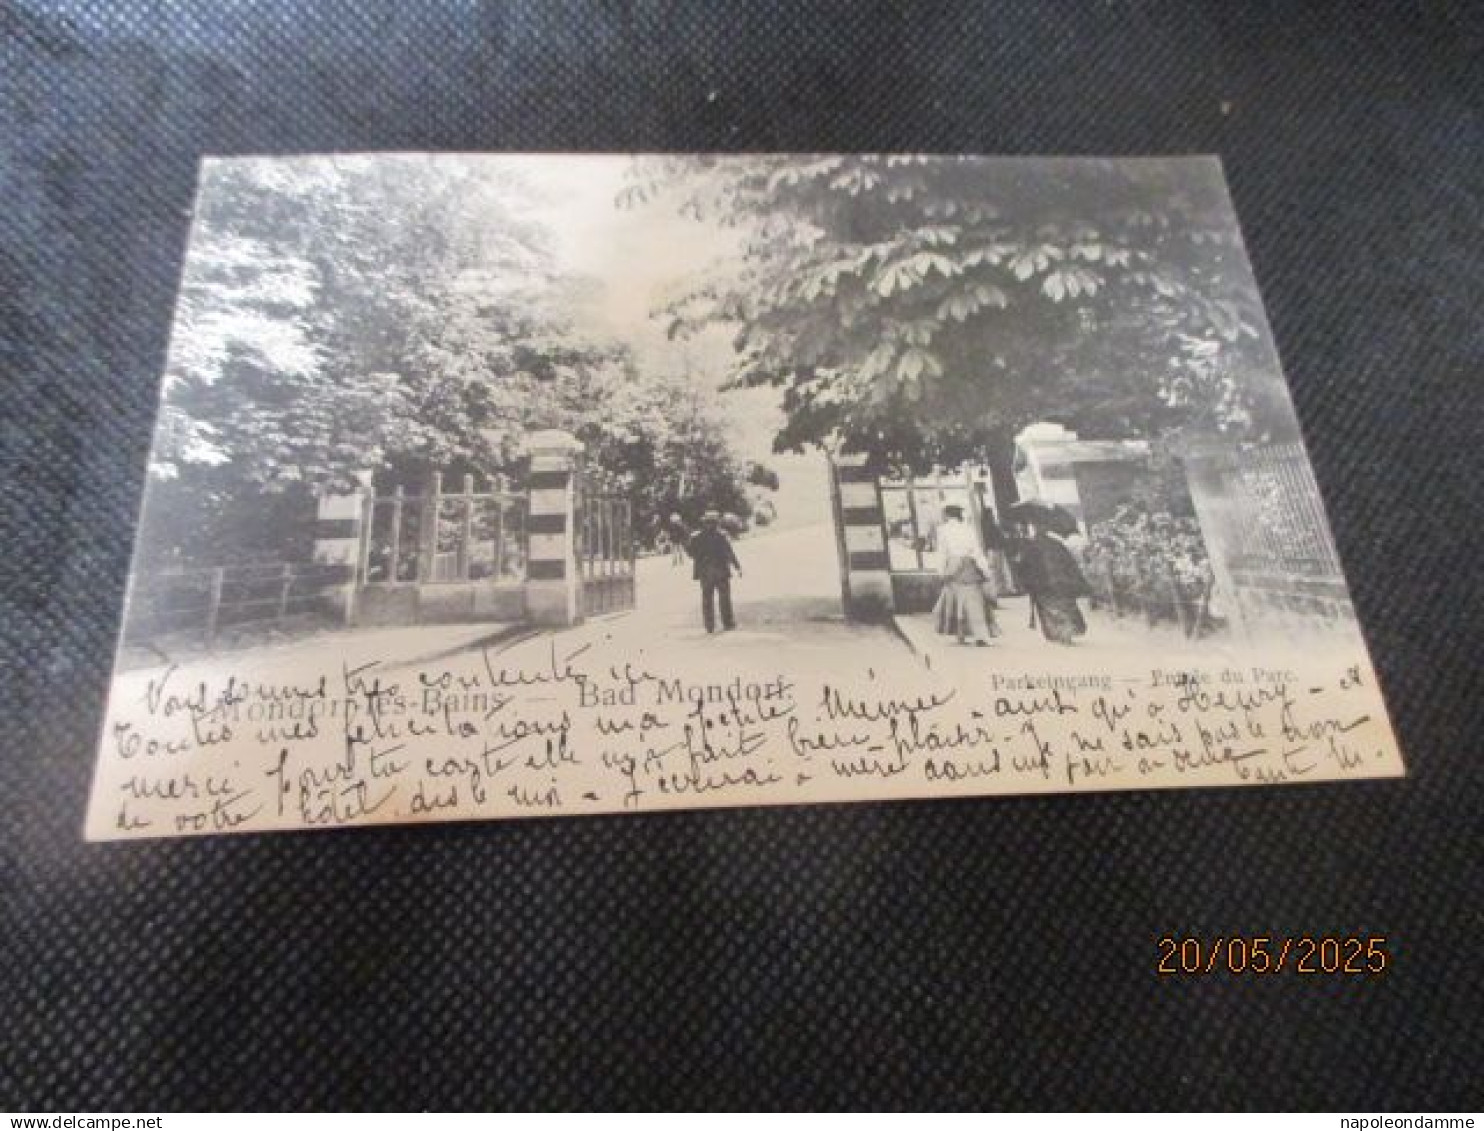 Vous sommes très contents ici
Mondorf-les-Bains — Bad Mondorf.
Parkeingang — Entrée du Parc.
Toutes mes félicitations ma petite Mémée, ainsi qu'à Henry - et
merci pour ta carte elle m'a fait bien plaisir. Je ne sais pas le nom
de votre hôtel, dis le moi - J'écrirai à mère dans un jour ou deux
Tante M.
20/05/2025
napoleondamme